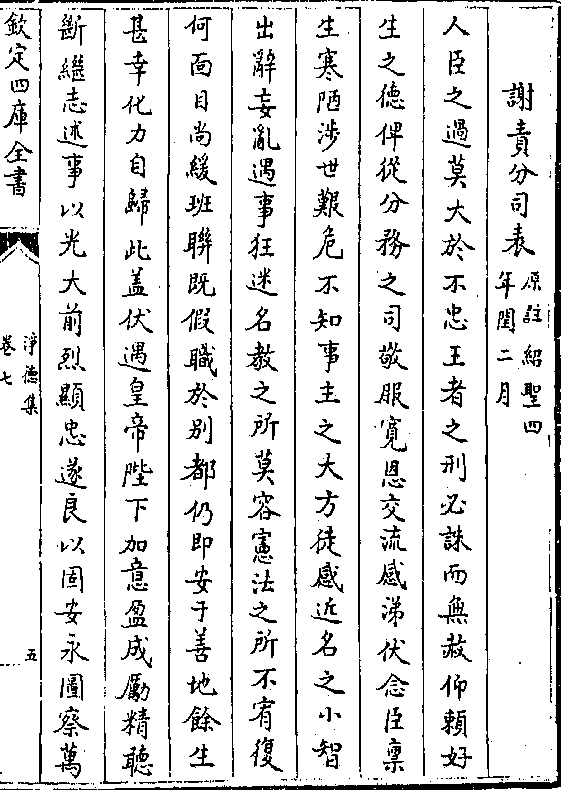 謝責分司表原註紹聖四年閏二月
人臣之過莫大於不忠王者之刑必誅而無赦仰賴好
生之德俾從分務之司敬服寛恩交流感涕伏念臣禀
生寒陋涉世艱危不知事主之大方徒感近名之小智
出辭妄亂遇事狂迷名教之所莫容憲法之所不宥復
何面目尚緩班聨既假職於别都仍即安于善地餘生
甚幸化力自歸此盖伏遇皇帝陛下加意盈成勵精聽
斷繼志述事以光大前烈顯忠遂良以固安永圖察萬
欽定四庫全書
淨德集
卷七
五